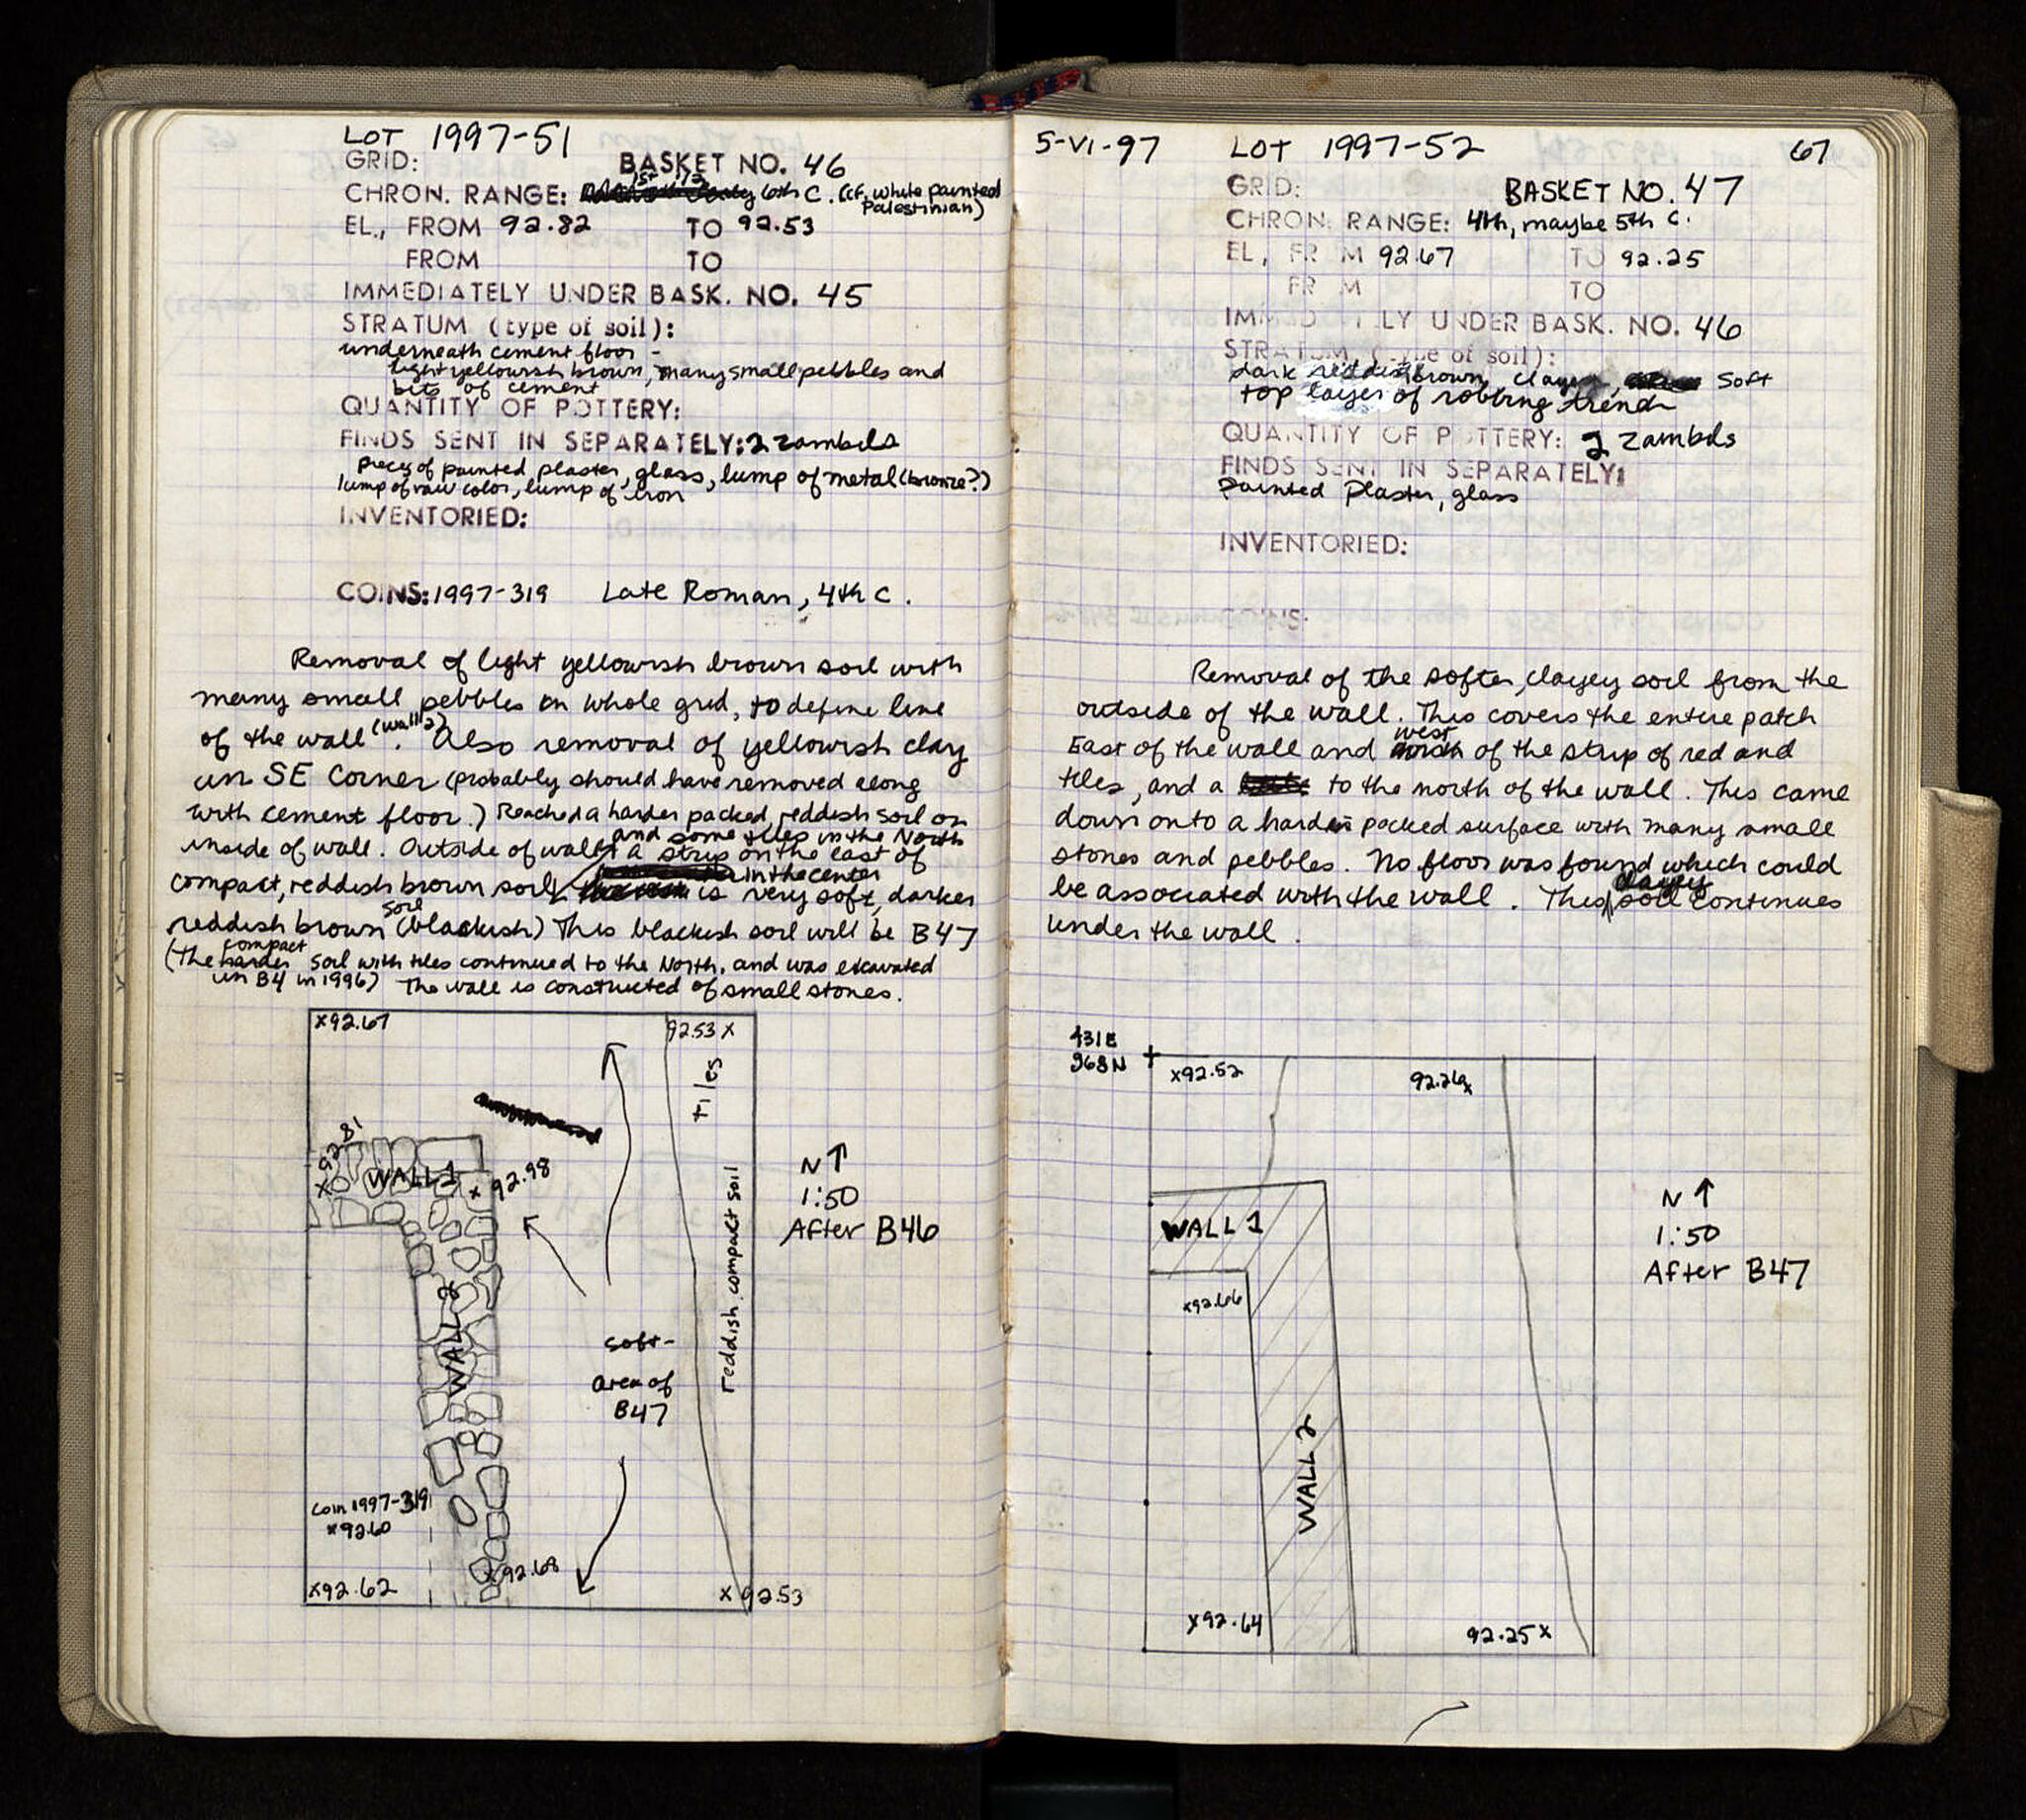 LOT 1997-51
GRID: BASKET NO. 46
CHRON. RANGE: 1st 1/2 6th C. (cf. white painted
Palestinian)
EL., FROM 92.82 TO 92.53
FROM TO
IMMEDIATELY UNDER BASK. NO. 45
STRATUM (type of soil):
underneath cement floor -
light yellowish brown, many small pebbles and
bits of cement
QUANTITY OF POTTERY:
FINDS SENT IN SEPARATELY: 2 zambils
pieces of painted plaster, glass, lump of metal (bronze?)
lump of raw color, lump of iron
INVENTORIED:
COINS: 1997-319 Late Roman, 4th C.
Removal of light yellowish brown soil with
many small pebbles on whole grid, to define line
of the wall (wall 2). Also removal of yellowish clay
in SE Corner (probably should have removed along
with cement floor.) Reached a harder packed, reddish soil on
inside of wall. Outside of wall, a strip on the east of
and some tiles in the North
compact, reddish brown soil, in the center is very soft, darker
reddish brown soil (blackish) This blackish soil will be B47
(The harder compact soil with tiles continued to the North, and was excavated
in B4 in 1996) The wall is constructed of small stones.
x92.67
92.53 x
tiles
92.81
x
WALL 1
x 92.98
N↑
1:50
After B46
reddish compact soil
WALL 2
soft-
area of
B47
Coin 1997-319
x92.60
x92.68
x92.62
x 92.53
5-VI-97 LOT 1997-52 67
GRID: BASKET NO. 47
CHRON. RANGE: 4th, maybe 5th C.
EL, FR M 92.67 TO 92.25
FR M TO
IMM D I LY UNDER BASK. NO. 46
STRATUM (type of soil):
dark reddish brown, clayey, soft
top layer of robbing trench
QUANTITY OF P TTERY: 2 zambils
FINDS SENT IN SEPARATELY:
Painted Plaster, glass
INVENTORIED:
COINS:
Removal of the softer, clayey soil from the
outside of the wall. This covers the entire patch
East of the wall and west of the strip of red and
tiles, and a to the north of the wall. This came
down onto a harder packed surface with many small
stones and pebbles. No floor was found which could
be associated with the wall. This clayey soil continues
under the wall.
431E
968N
x92.52
92.26x
WALL 1
N↑
1:50
After B47
x92.66
WALL 2
x92.64
92.25x